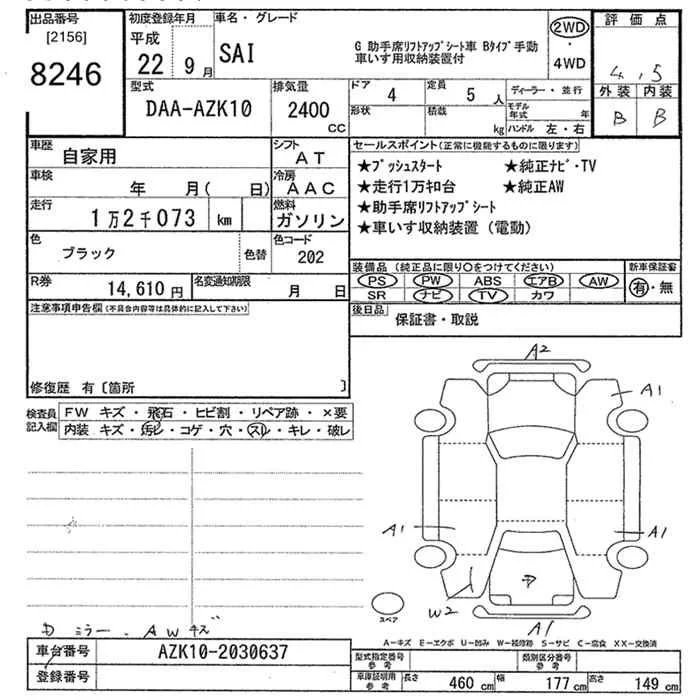 出品番号 初度登録年月 車名・グレード 2WD 評価点
[2156] 平成 SAI G 助手席リフトアップシート車 Bタイプ手動 ・ 4.5
8246 22 9月 車いす用収納装置付 4WD 外装 内装
型式 排気量 ドア 定員 ディーラー・並行 B B
DAA-AZK10 2400 CC 4 5人 モデル年式 年
形状 積載 kg ハンドル 左・右
車歴 自家用 シフト AT セールスポイント(正常に機能するものに限ります)
車検 年 月( 日) 冷房 AAC ★プッシュスタート ★純正ナビ・TV
走行 1万2千073 km 燃料 ガソリン ★走行1万キロ台 ★純正AW
★助手席リフトアップシート
色 ブラック 色替 色コード 202 ★車いす収納装置(電動)
R券 14,610円 名変通知期限 月 日 装備品(純正品に限り○をつけてください) 新車保証書
PS PW ABS エアB AW 有・無
SR ナビ TV カワ
注意事項申告欄(不具合内容等は具体的に記入して下さい) 後日品 保証書・取説
修復歴 有〔箇所 〕
検査員記入欄 FW キズ・飛石・ヒビ割・リペア跡・×要
内装 キズ・汚レ・コゲ・穴・スレ・キレ・破レ
A2
A1
A1
A1
D
W2
A1
スペア
D ミラー. AWキズ
A-キズ E-エクボ U-凹み W-補修跡 S-サビ C-腐食 XX-交換済
車台番号 AZK10-2030637 型式指定番号 参考 類別区分番号 参考
登録番号 車庫証明用 参考 長さ 460cm 幅 177cm 高さ 149cm